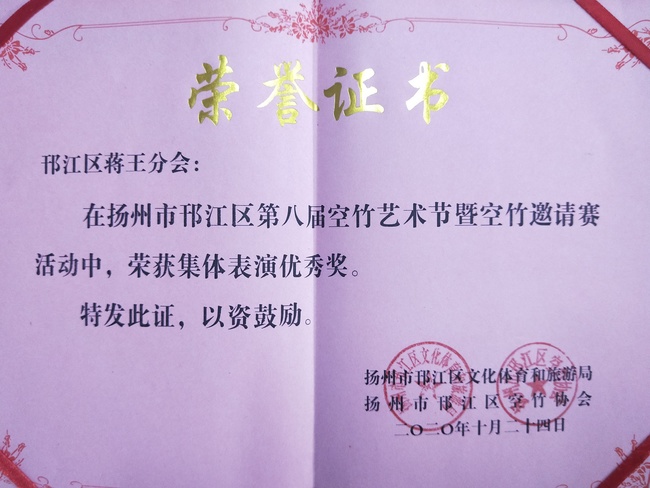 荣誉证书
邗江区蒋王分会：
在扬州市邗江区第八届空竹艺术节暨空竹邀请赛
活动中，荣获集体表演优秀奖。
特发此证，以资鼓励。
扬州市邗江区文化体育和旅游局
扬州市邗江区空竹协会
二〇二〇年十月二十四日